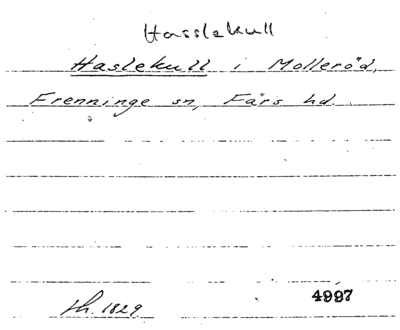 Hasslekull
Haslekull i Molleröd,
Frenninge sn, Färs hd.
1829
4997